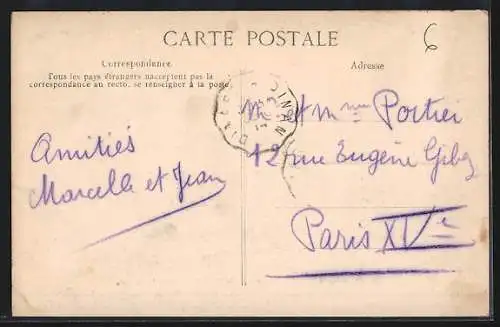 CARTE POSTALE
6
Correspondance
Tous les pays étrangers n'acceptent pas la
correspondance au recto. se renseigner à la poste
Adresse
DINAN
Amitiés
Marcelle et Jean
M et mme Portier
12 rue Eugène
Paris XVe